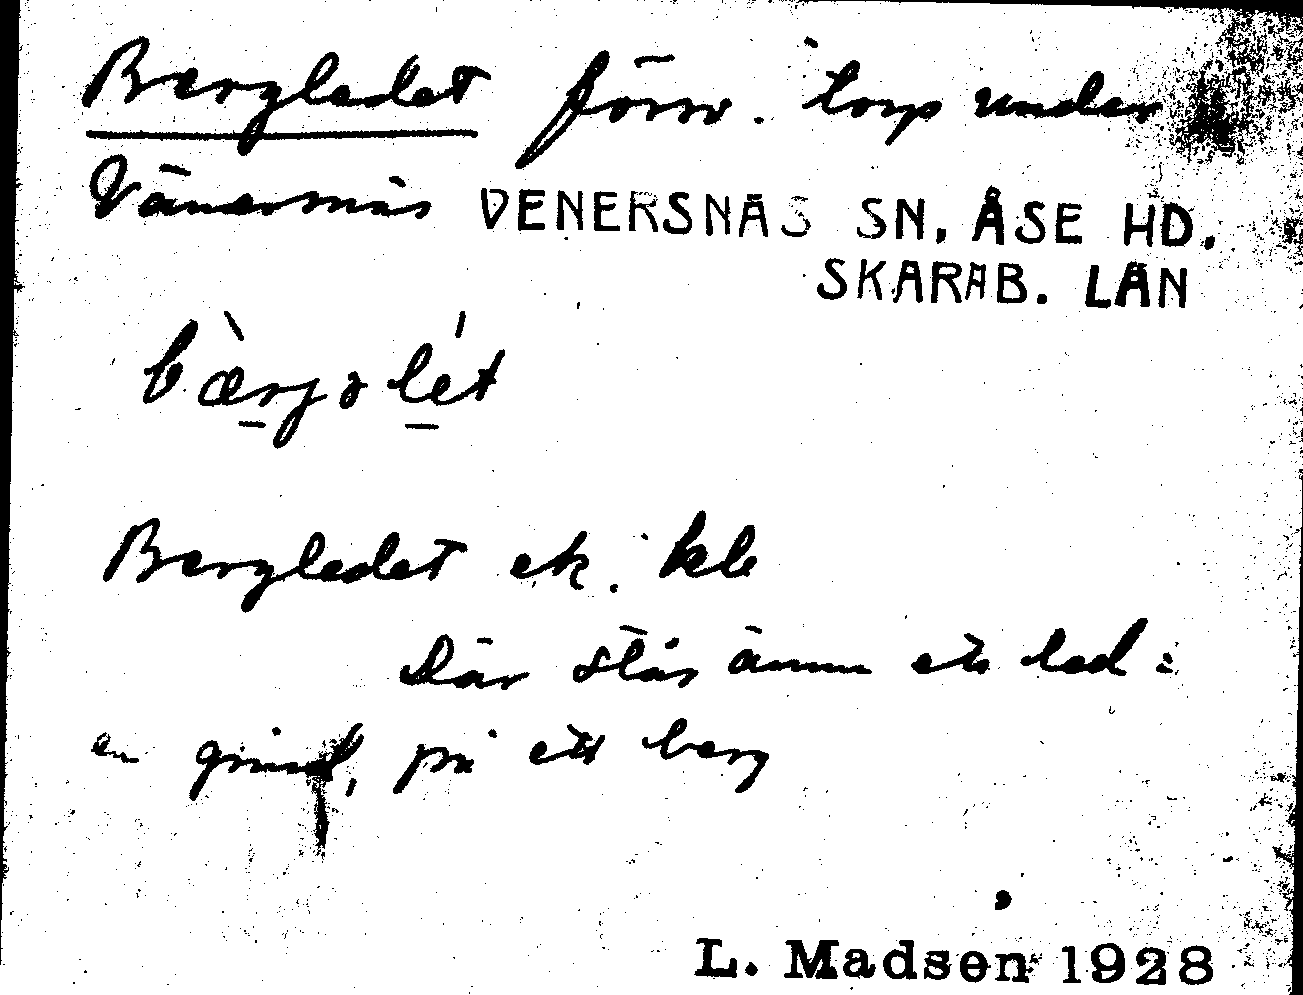 Bergledet förr. torp under
Vänersnäs VENERSNÄS SN, ÅSE HD.
SKARAB. LÄN
bæ̀rjəlét
Bergledet ek. kb
Där står ännu ett led:
en grind, på ett berg
L. Madsen 1928